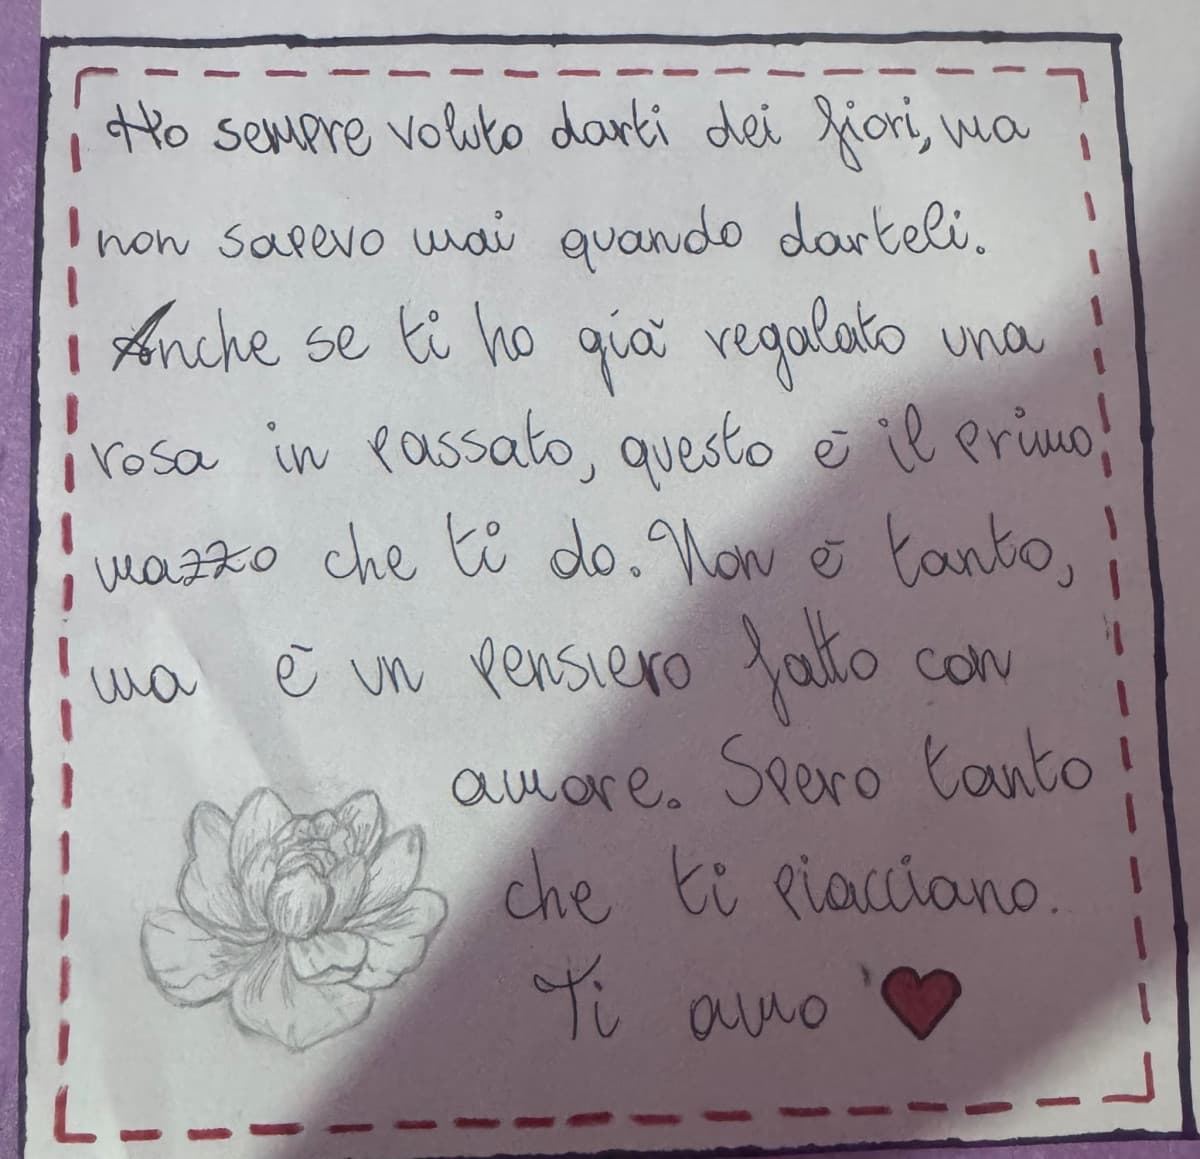 Ho sempre voluto darti dei fiori, ma
non sapevo mai quando darteli.
Anche se ti ho già regalato una
rosa in passato, questo è il primo
mazzo che ti do. Non è tanto,
ma è un pensiero fatto con
amore. Spero tanto
che ti piacciano.
Ti amo